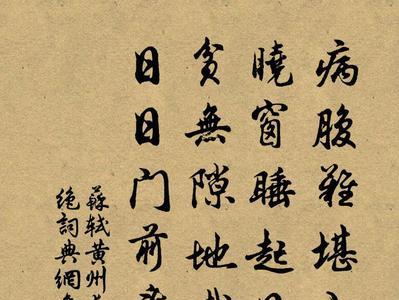 病腹難堪
曉窗睡起
貧無隙地
日日門前
蘇軾黃州
絕詞典網